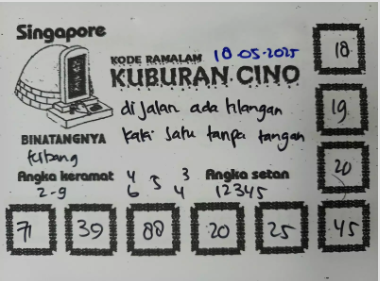 Singapore
KODE RAMALAN 18-05-2025
KUBURAN CINO
di jalan ada hlangan
kaki satu tanpa tangan
BINATANGNYA
Angka keramat
2-9
4 5 3
6 4
Angka setan
12345
18
19
20
71 39 88 20 25 45